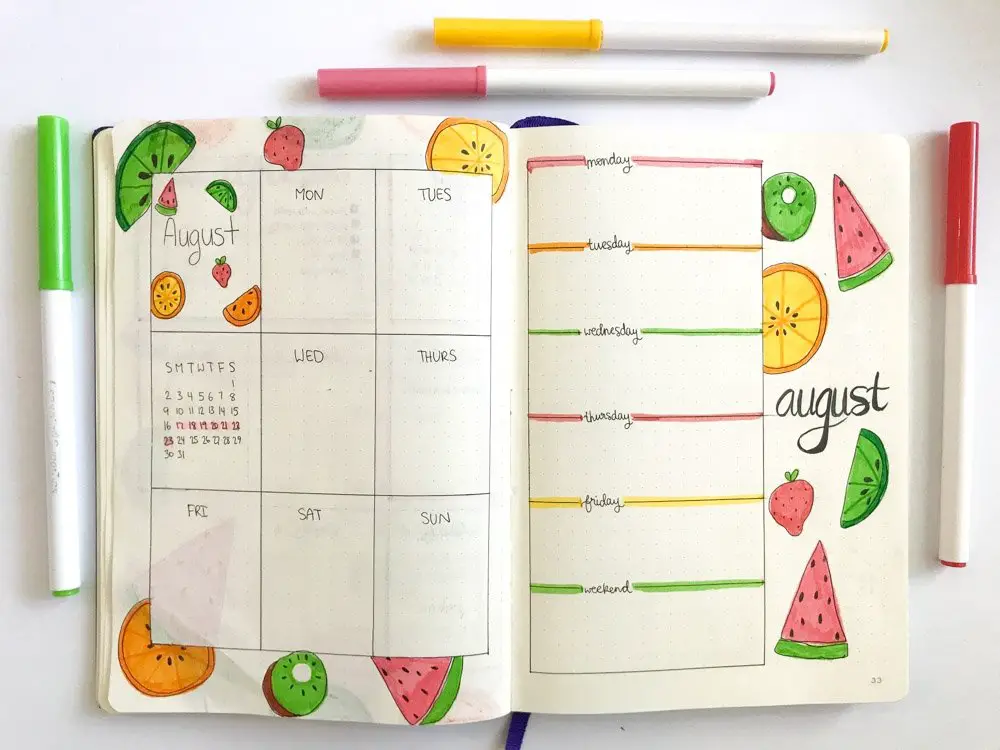 August
MON
TUES
S M T W T F S
1
2 3 4 5 6 7 8
9 10 11 12 13 14 15
16 17 18 19 20 21 22
23 24 25 26 27 28 29
30 31
WED
THURS
FRI
SAT
SUN
monday
tuesday
wednesday
thursday
friday
weekend
august
33